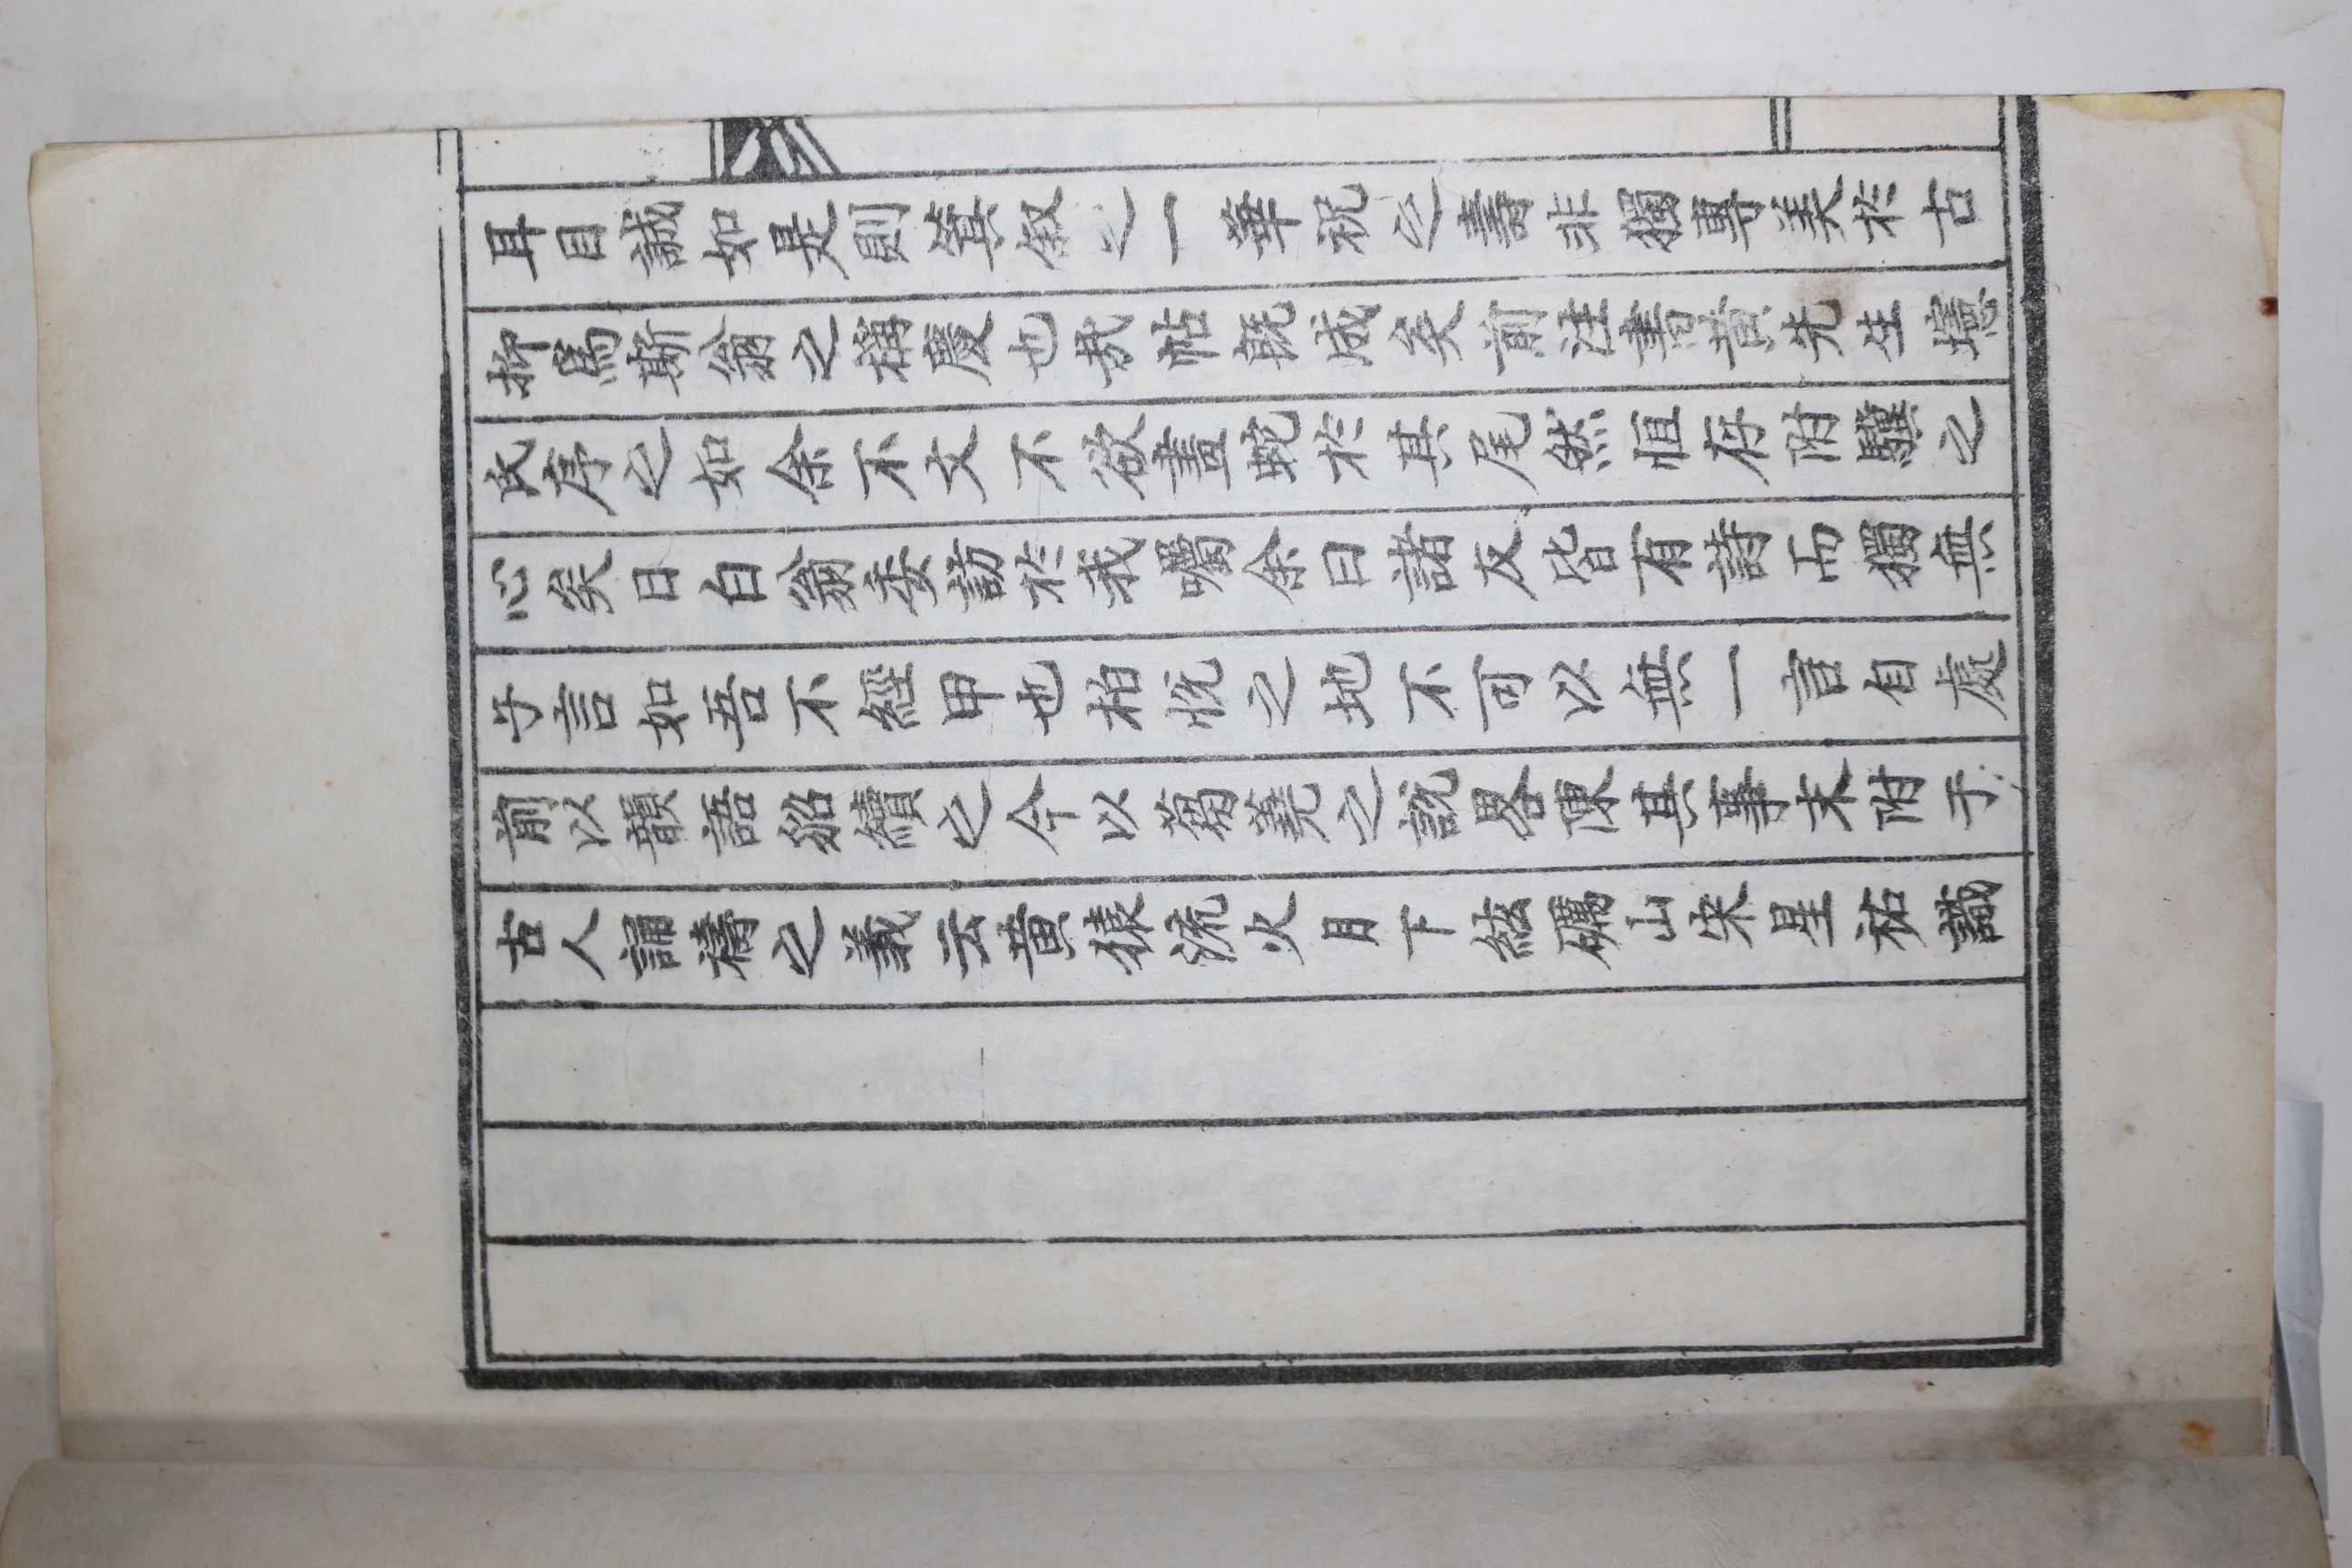 耳目誠如是則箕叙之一華祝之壽非獨專美於古
抑爲斯翁之稱慶也哉帖旣成矣前注書黄先生瓗
氏序之如余不文不欲畫蛇於其尾然恒存附驥之
心矣日白翁委訪於我囑余曰諸友皆有詩而獨無
子言如吾不經甲也柏悅之地不可以無一言自處
前以韻語貂續之今以蒭蕘之說畧陳其事末附于
古人誦禱之義云黄猿流火月下絃礪山宋星祐識